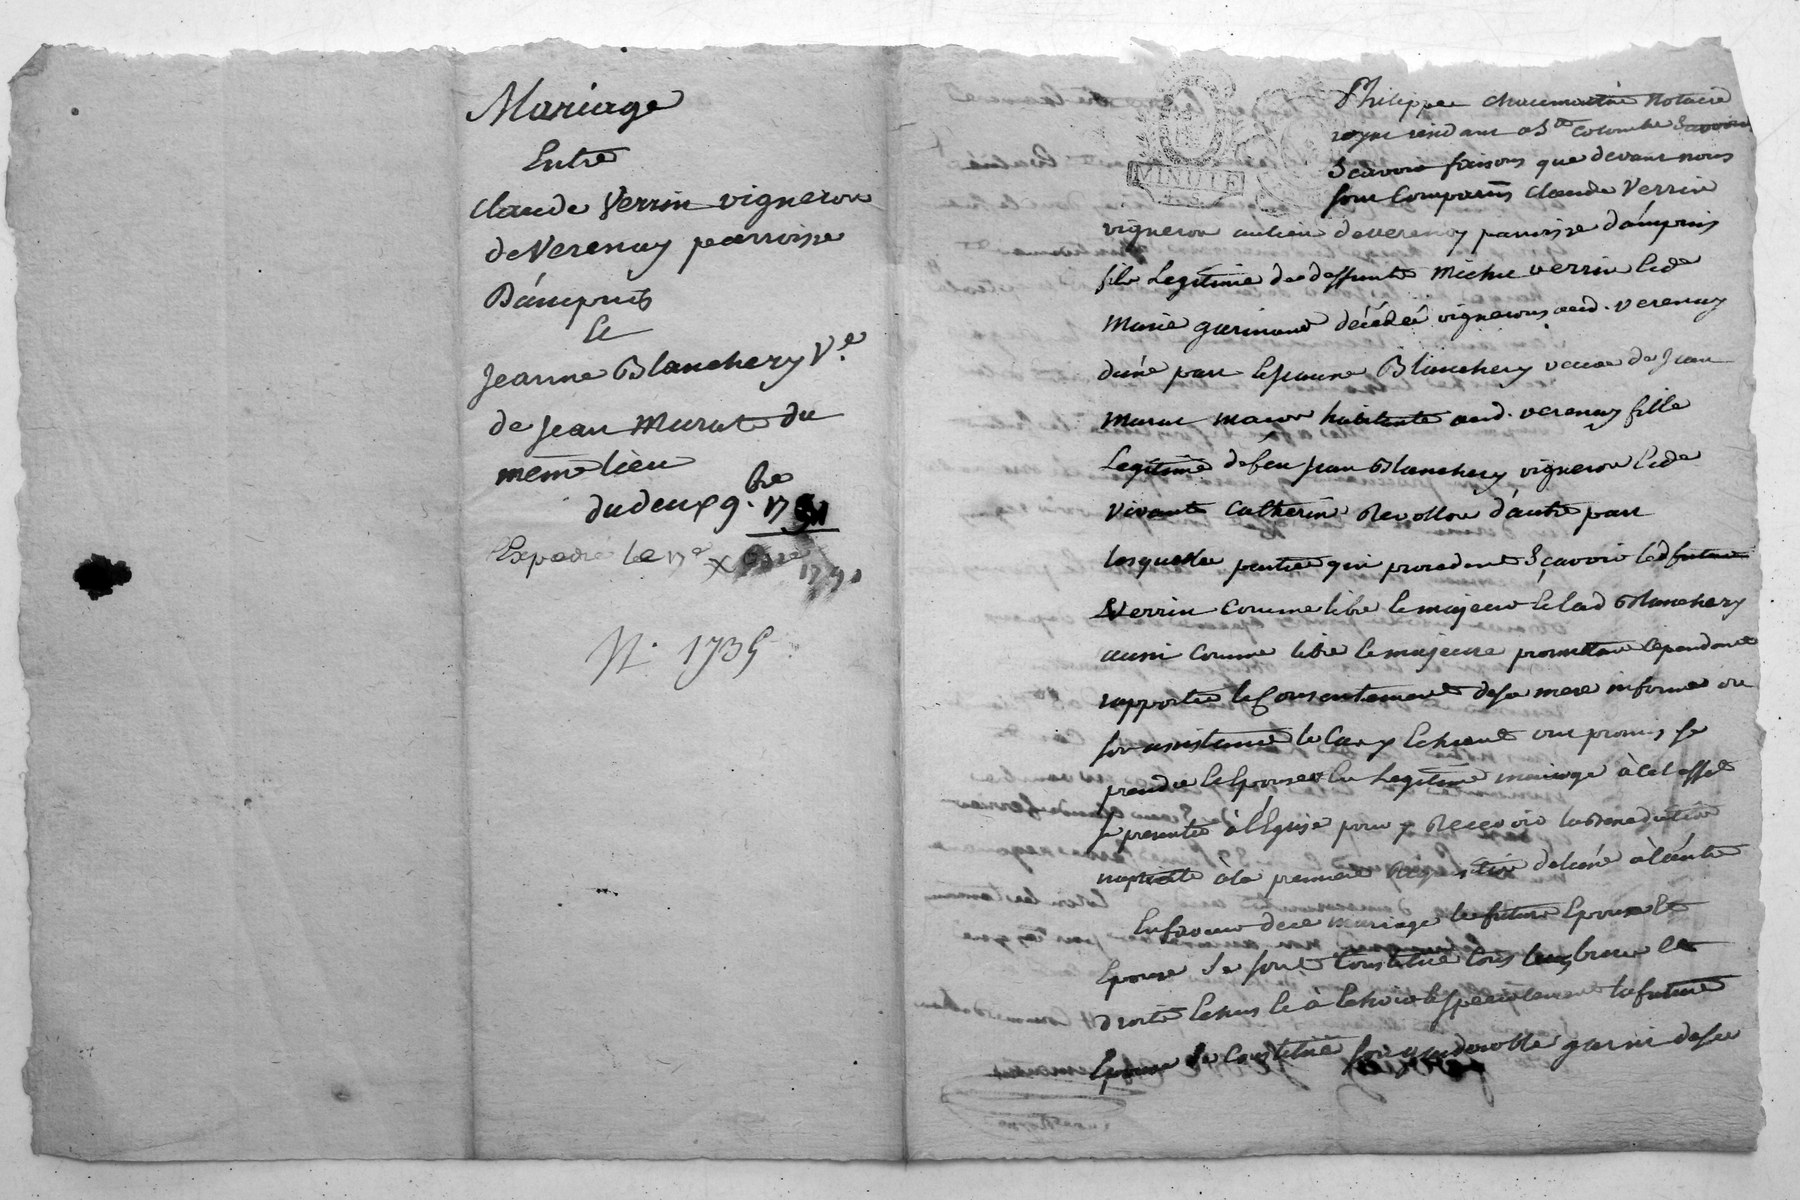 Mariage
Entre
claude Verrin vigneron
de Verenay parroisse
Dámpuis
Et
Jeanne Blanchery Ve
de Jean Murat du
meme lieu
du deux 9.bre 17
Expedié le 17e 1791
N. 1735
MINUTE
Philippe chaumartin Notaire
royal residant a Ste Colombe
Scavoir faisons que devant nous
sont Comparus claude Verrin
vigneron au lieu de verenay parroisse dámpuis
fils Legitime de deffunts Michel verrin Et de
Marie guerimand décédée vignerons aud. verenay
dúne part Et Jeanne Blanchery veuve de Jean
Murat macon habitante aud. verenay fille
Legitime de feu Jean Blanchery vigneron Et de
vivante Catherin Revollon d'autre part
lesquelles parties qui procedent Sçavoir led futur
Verrin comme libre Et majeur Et lad Blanchery
aussi comme libre Et majeure promettant Cependant
rapporter le Consentement de sa mere informes ou
son assistance le Cas y Echeant ont promis se
prendre Et Epouser En Legitime mariage à cet effet
se presenter à l'Eglise pour y Recevoir la Benediction
nuptialle à la premiere Requisition de lúne à láutre
En faveur de ce mariage les futurs Epoux Et
Epouse Se sont Constitué tous leurs biens Et
droits Echus Et à Echoir Et specialement la future
Epouse Se Constitue son garni de ses